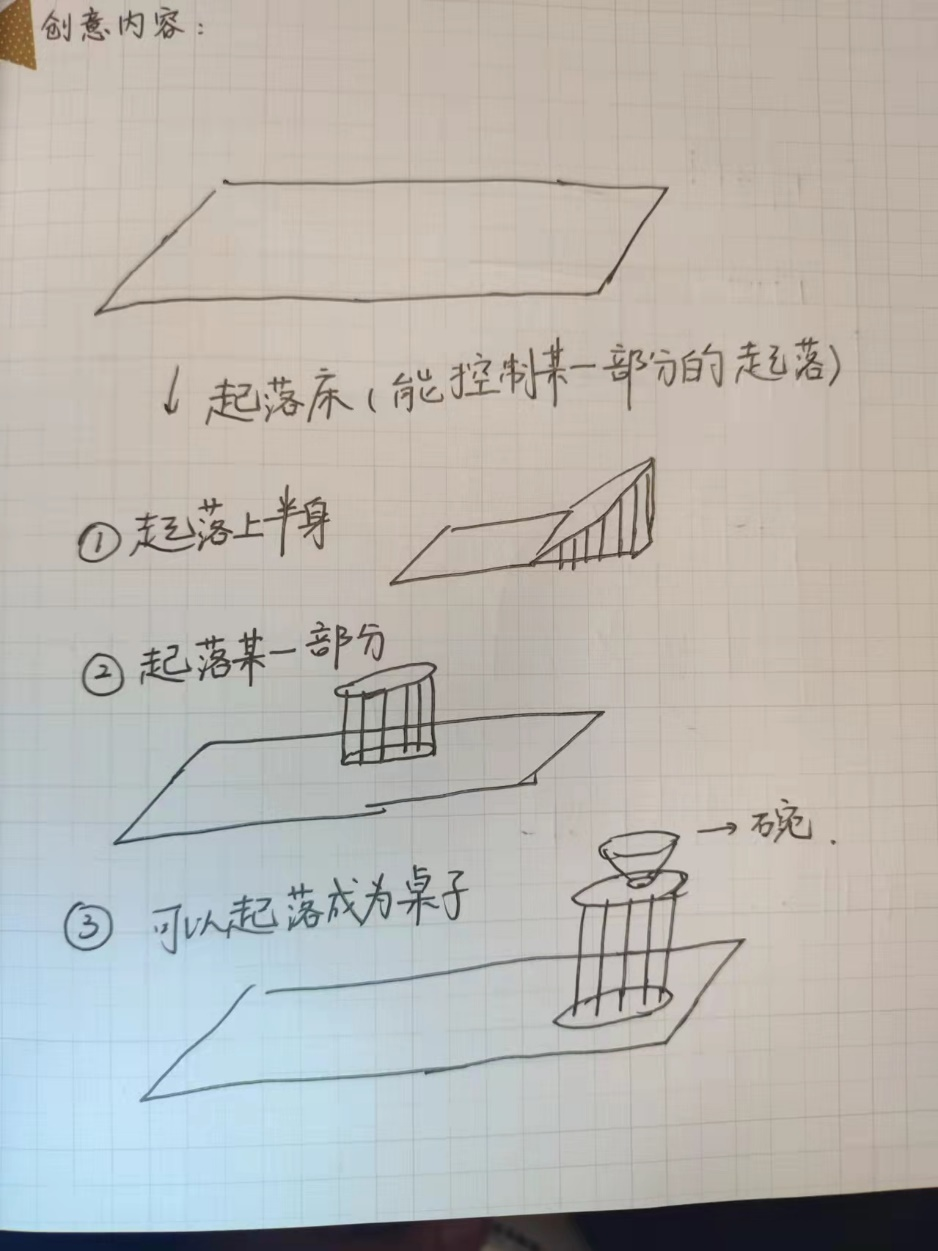 创意内容：
↓ 起落床（能控制某一部分的起落）
① 起落上半身
② 起落某一部分
→ 碗.
③ 可以起落成为桌子